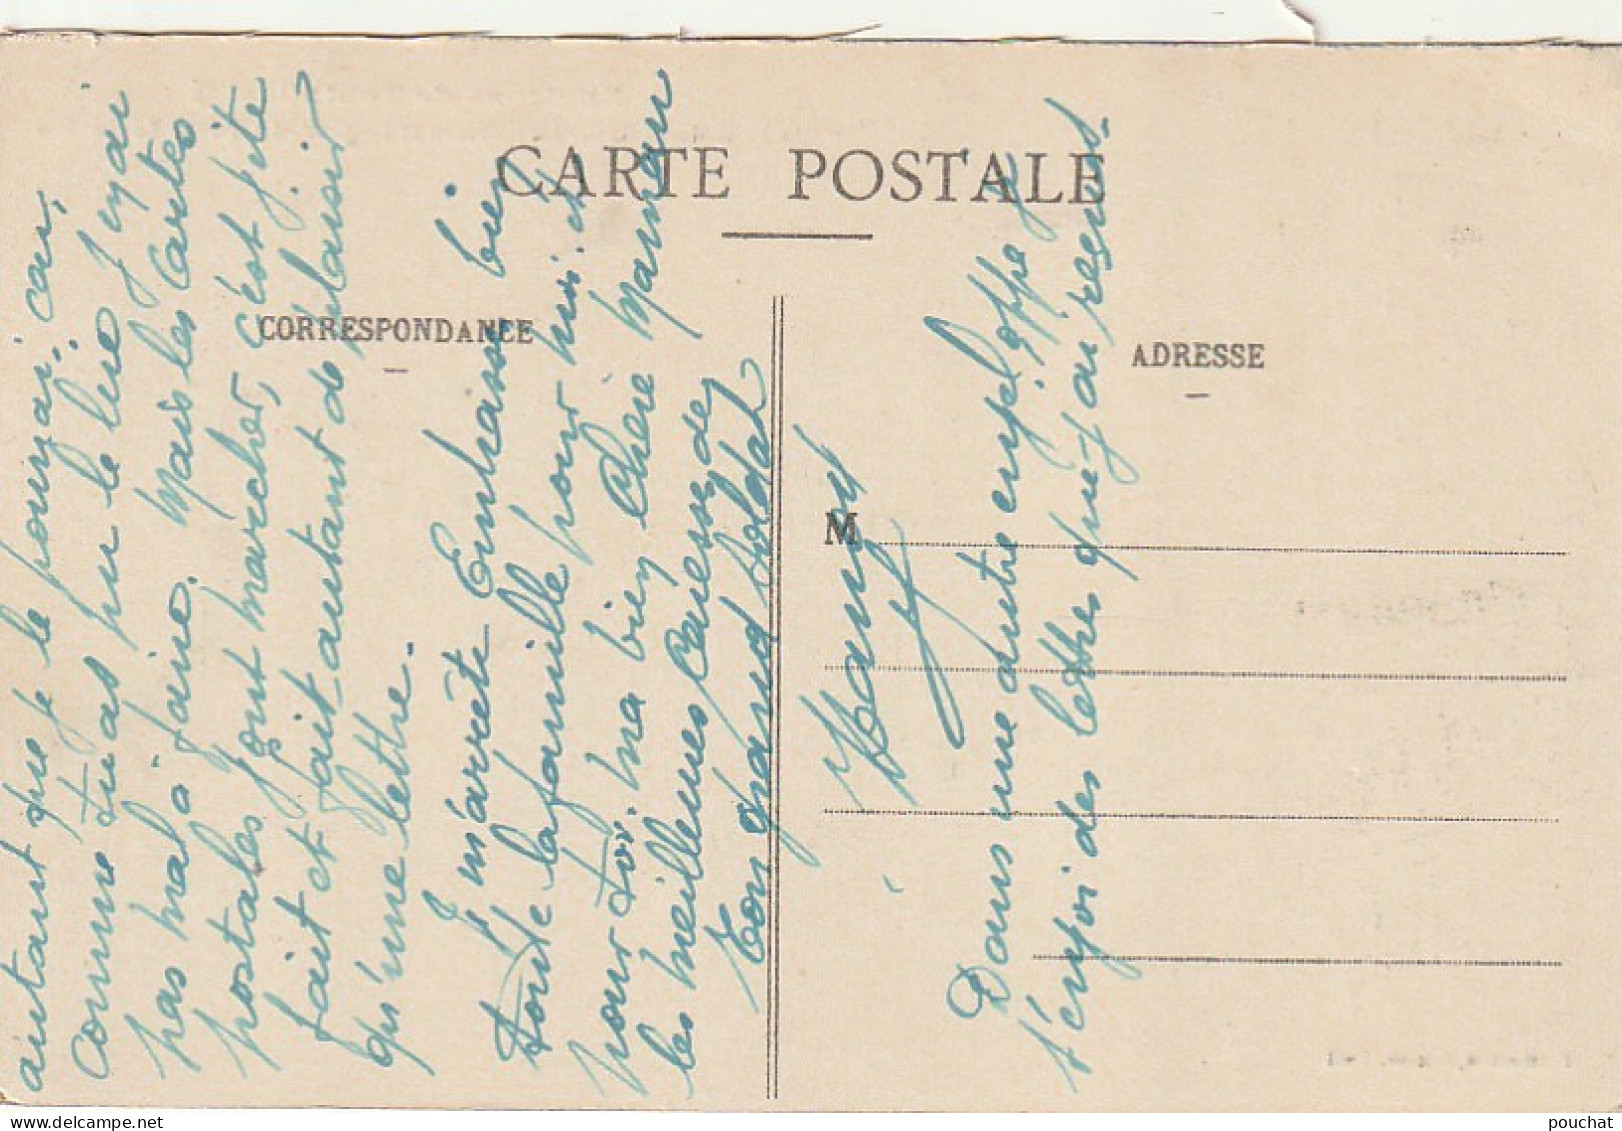 CARTE POSTALE
CORRESPONDANCE
ADRESSE
M
autant que je le pourrai.. car,
comme tu as pu le lire j'en ai
pas mal à faire. Mais les cartes
postales font marcher, c'est vite
fait et fait autant de plaisir
qu'une lettre.
J'm'arrête Embrasse bien
toute la famille pour moi. et
pour toi. ma bien chère Maman
les meilleures caresses de
ton grand soldat
Dans une autre enveloppe je
t'envoi des lettres que j'ai reçus-
pouchat